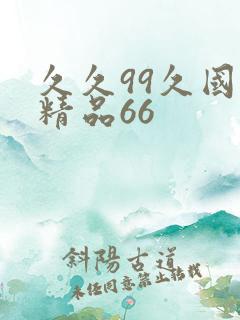 夂夂99夂國
精品66
斜陽古道
未经同意禁止转载